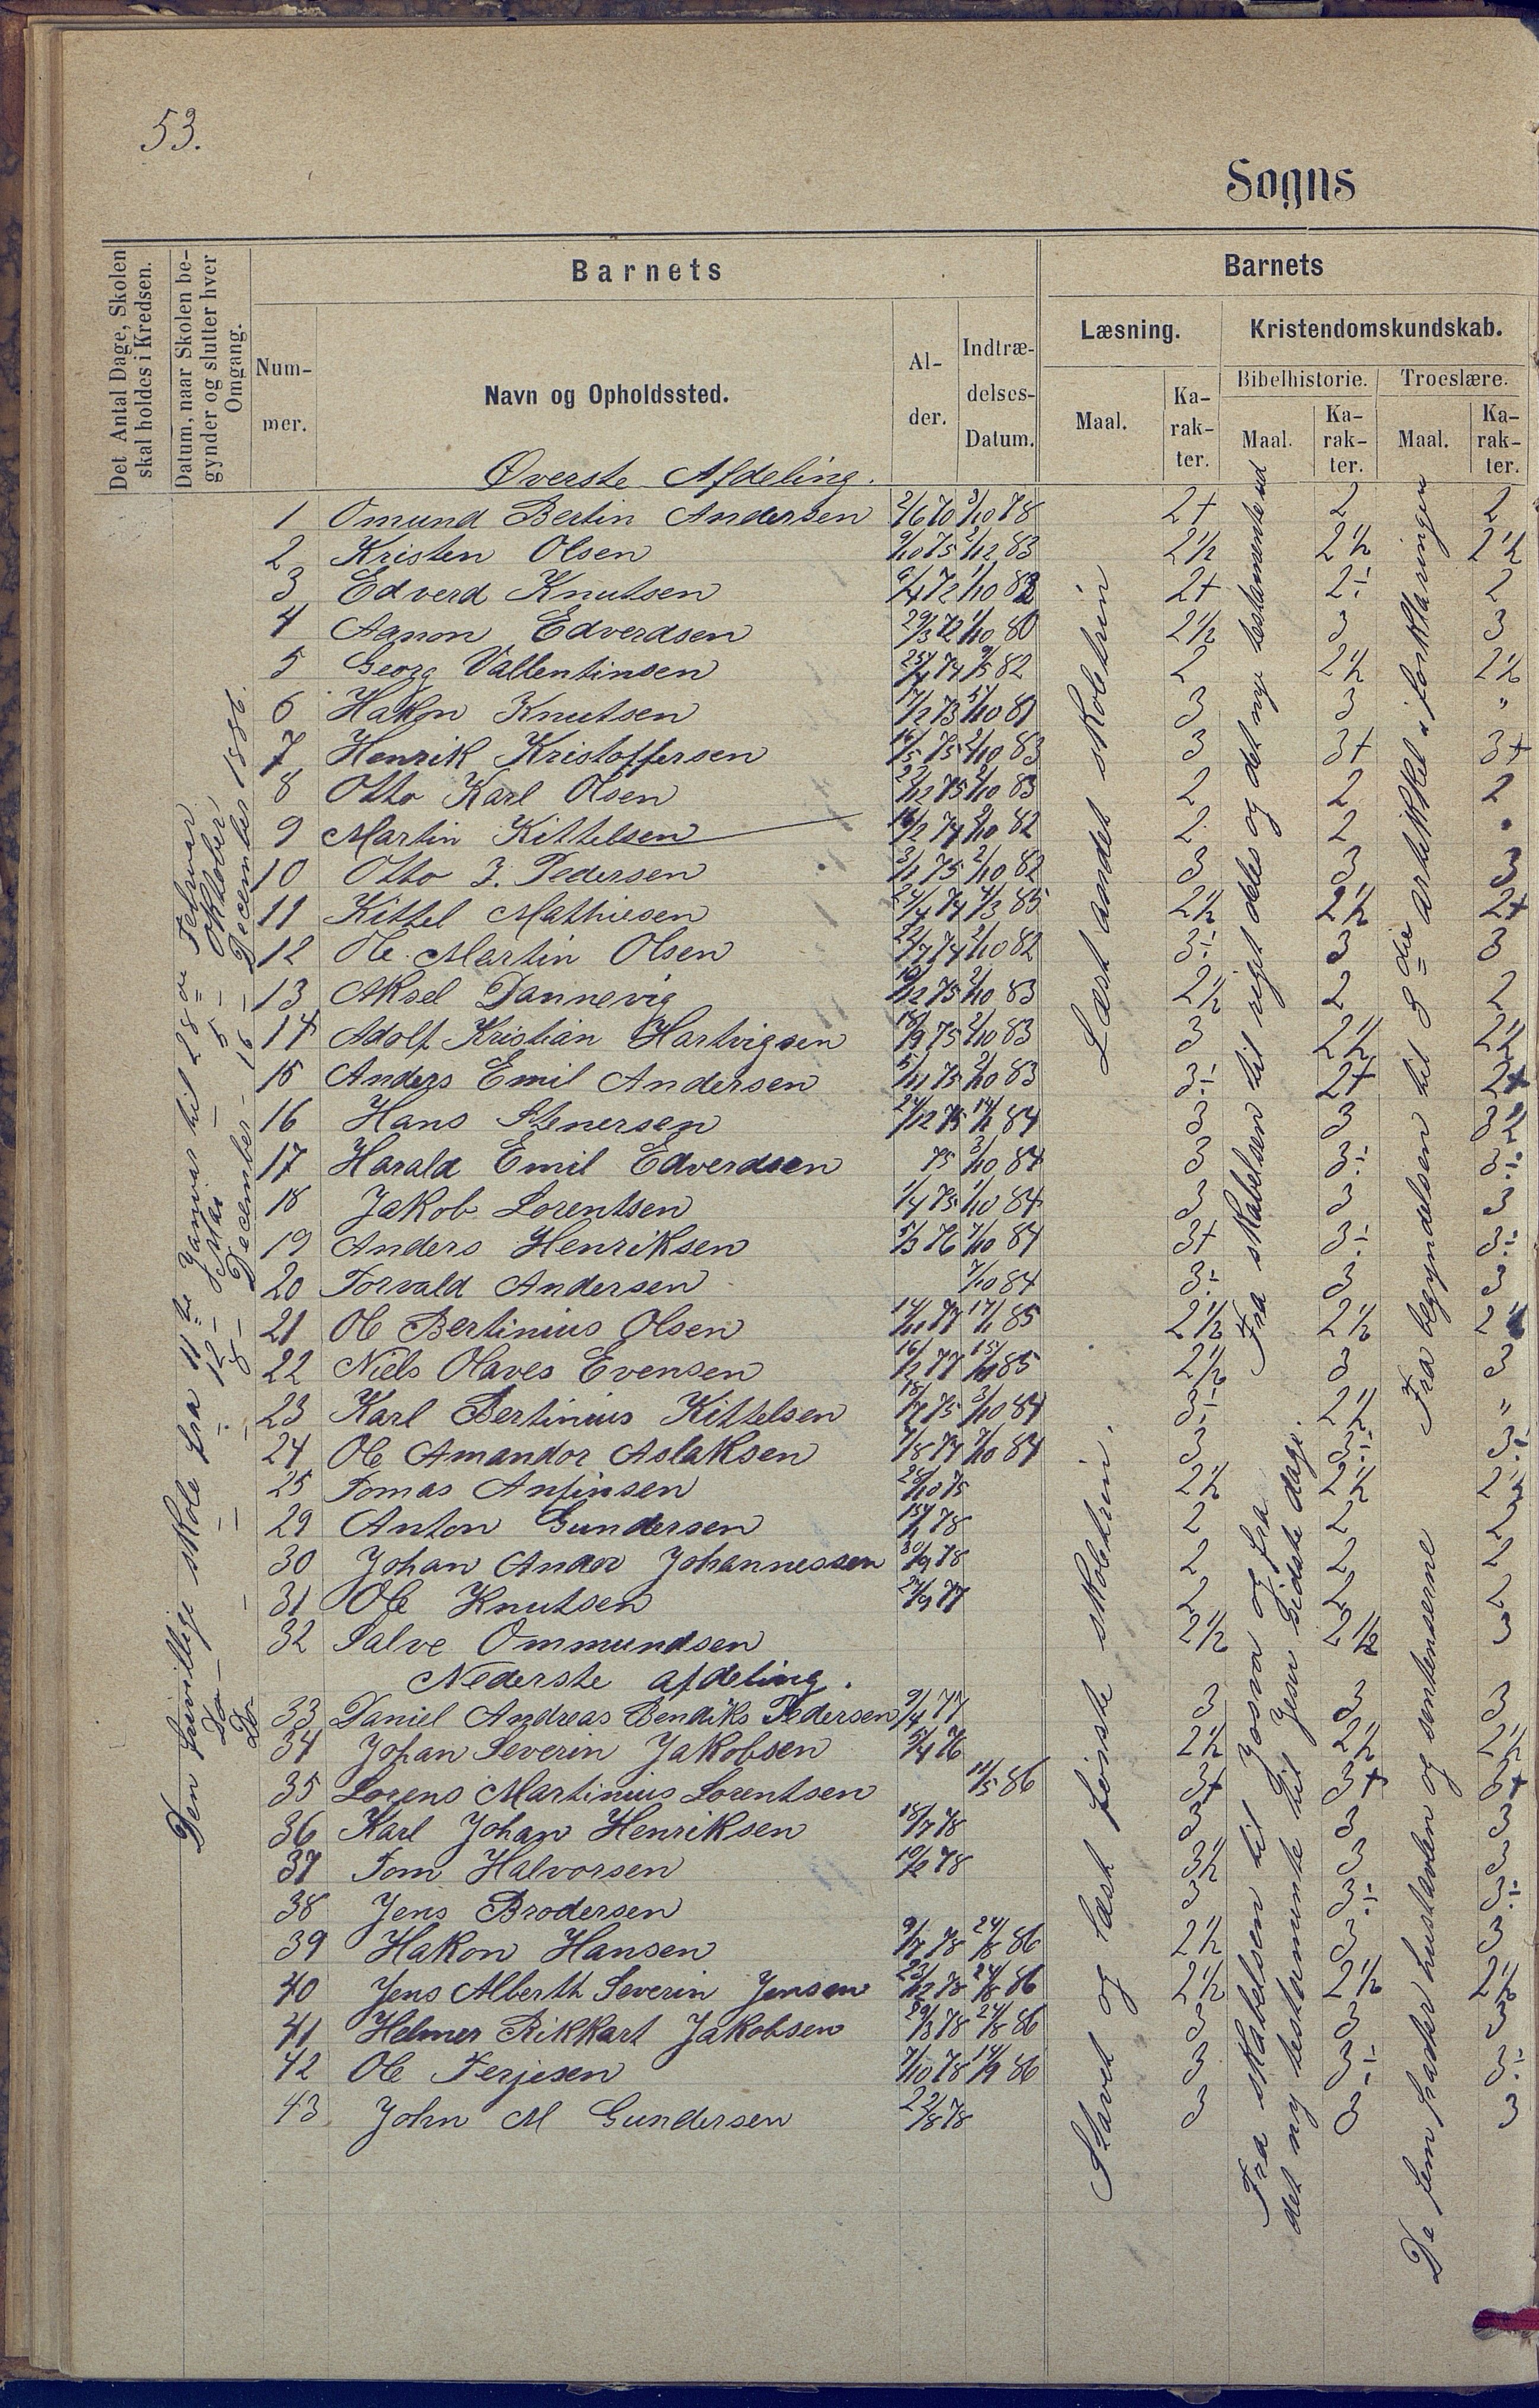 53.
Sogns
Det Antal Dage, Skolen
skal holdes i Kredsen.
Datum, naar Skolen be-
gynder og slutter hver
Omgang.
Barnets
Num-
mer.
Navn og Opholdssted.
Al-
der.
Indtræ-
delses-
Datum.
Barnets
Læsning.
Kristendomskundskab.
Maal.
Ka-
rak-
ter.
Bibelhistorie.
Troeslære.
Maal.
Ka-
rak-
ter.
Maal.
Ka-
rak-
ter.
Den frivillige skole fra 11te Januar til 28de Februar
Do — — 12 — Juli — 5 — Oktober
Do — — 8 — December — 16 — December 1886.
Øverste Afdeling.
1 Omund Bertin Andersen 2/6 70 3/10 78 2+ 2 2
2 Kristen Olsen 9/10 75 2/12 83 2½ 2½ 2½
3 Edverd Knutsen 6/4 72 1/10 82 2+ 2÷ 2
4 Aanon Edverdsen 29/3 72 1/10 80 2½ 3 3
5 Georg Vallentinsen 25/4 74 9/5 82 2 2½ 2½
6 Hakon Knutsen 17/2 73 /10 81 3 3 "
7 Henrik Kristoffersen 16/5 75 2/10 83 3 3+ 3+
8 Otto Karl Olsen 22/12 75 2/10 83 2 2 2
9 Martin Kittelsen 16/2 74 2/10 82 2 2
10 Otto J. Pedersen 3/11 75 2/10 82 3 3 3
11 Kittel Mathiesen 24/4 74 7/3 85 2½ 2½ 2+
12 Ole Martin Olsen 22/7 74 2/10 82 3÷ 3 3
13 Aksel Dannevig 10/12 75 2/10 83 2½ 2 2
14 Adolf Kristian Hartvigsen 18/9 75 2/10 83 3 2½ 2½
15 Anders Emil Andersen 5/11 75 2/10 83 3÷ 2+ 2+
16 Hans Stenersen 24/12 75 84 3 3 3½
17 Harald Emil Edverdsen 75 3/10 84 3 3÷ 3÷
18 Jakob Lorentsen 1/4 75 1/10 84 3 3 3
19 Anders Henriksen 5/3 76 7/10 84 3+ 3÷ 3÷
20 Torvald Andersen 7/10 84 3÷ 3 3
21 Ole Bertinius Olsen 14/11 77 17/1 85 2½ 2½ 2½
22 Niels Olaves Evensen 16/2 77 85 2½ 3 3
23 Karl Bertinius Kittelsen 18/7 75 3/10 84 3÷ 2½ "
24 Ole Amandor Aslaksen 7/8 74 7/10 84 3 3÷ 3÷
25 Tomas Anfinsen 28/10 75 2½ 2½ 2½
29 Anton Gundersen 78 2 2 2
30 Johan Andor Johannessen 30/9 78 2 2 2
31 Ole Knutsen 27/9 77 2 2 2
32 Salve Ommundsen 2½ 2½ 3
Nederste afdeling.
33 Daniel Andreas Bendiks Pedersen 9/4 77 3 3 3
34 Johan Severin Jakobsen 5/4 76 2½ 2½ 2½
35 Lorens Martinius Lorentsen 11/5 86 3+ 3+ 3+
36 Karl Johan Henriksen 18/7 78 3 3 3
37 Tom Halvorsen 10/2 78 3½ 3 3
38 Jens Brodersen 3 3÷ 3÷
39 Hakon Hansen 9/7 78 24/8 86 2½ 3 3
40 Jens Alberth Severin Jensen 23/12 78 24/8 86 2½ 2½ 2½
41 Helmer Rikkart Jakobsen 29/3 78 24/8 86 3 3 3
42 Ole Terjesen 7/10 78 14/9 86 3 3÷ 3÷
43 John M Gundersen 22/8 78 3 3 3
Læst andet skoletrin
Stavet og læst første skoletrin.
Fra skabelsen til riget deles og det ny testamente ud
Fra skabelsen til Josva og fra
det ny testamente til Jesu sidste dage.
Fra begyndelsen til 3die artikkel i forklaringen
De fem parter hustavlen og sentenserne